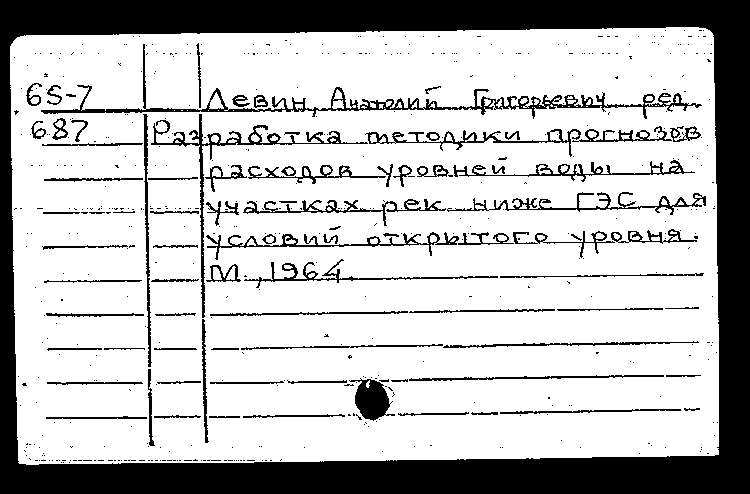 65-7 Левин, Анатолий Григорьевич ред.
687 Разработка методики прогнозов
расходов уровней воды на
участках рек ниже ГЭС для
условий открытого уровня.
М., 1964.